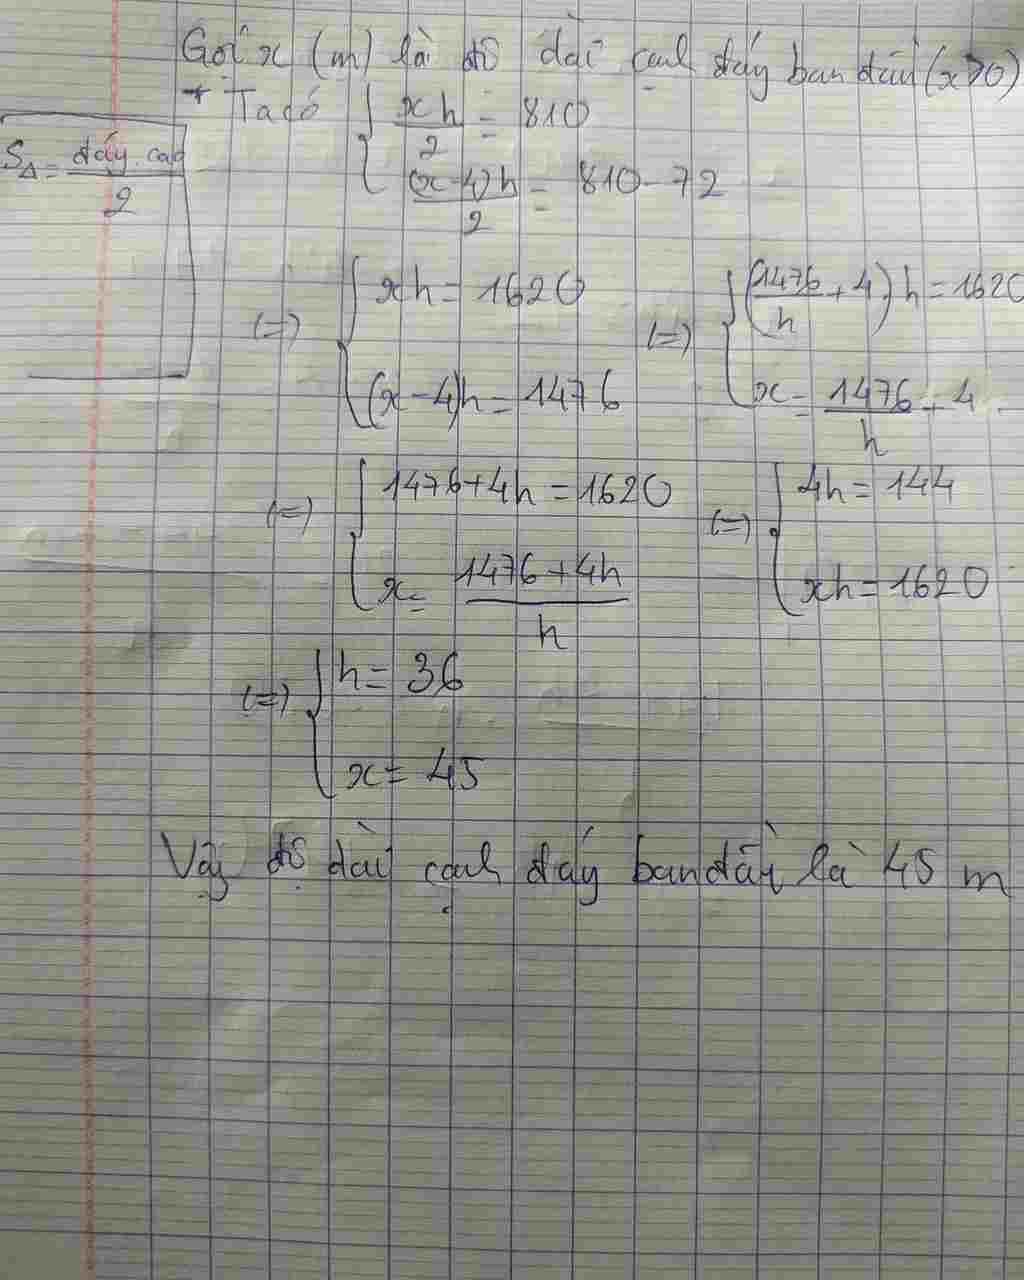 Gọi x (m) là độ dài cạnh đáy ban đầu (x>0)
* Ta có { xh/2 = 810
{ (x-4)h/2 = 810-72
S△ = đáy.cao/2
(=) { xh = 1620
{ (x-4)h = 1476
(=) { (1476/h + 4).h = 1620
{ x = 1476/h + 4
(=) { 1476+4h = 1620
{ x = (1476+4h)/h
(=) { 4h = 144
{ xh = 1620
(=) { h = 36
{ x = 45
Vậy độ dài cạnh đáy ban đầu là 45 m